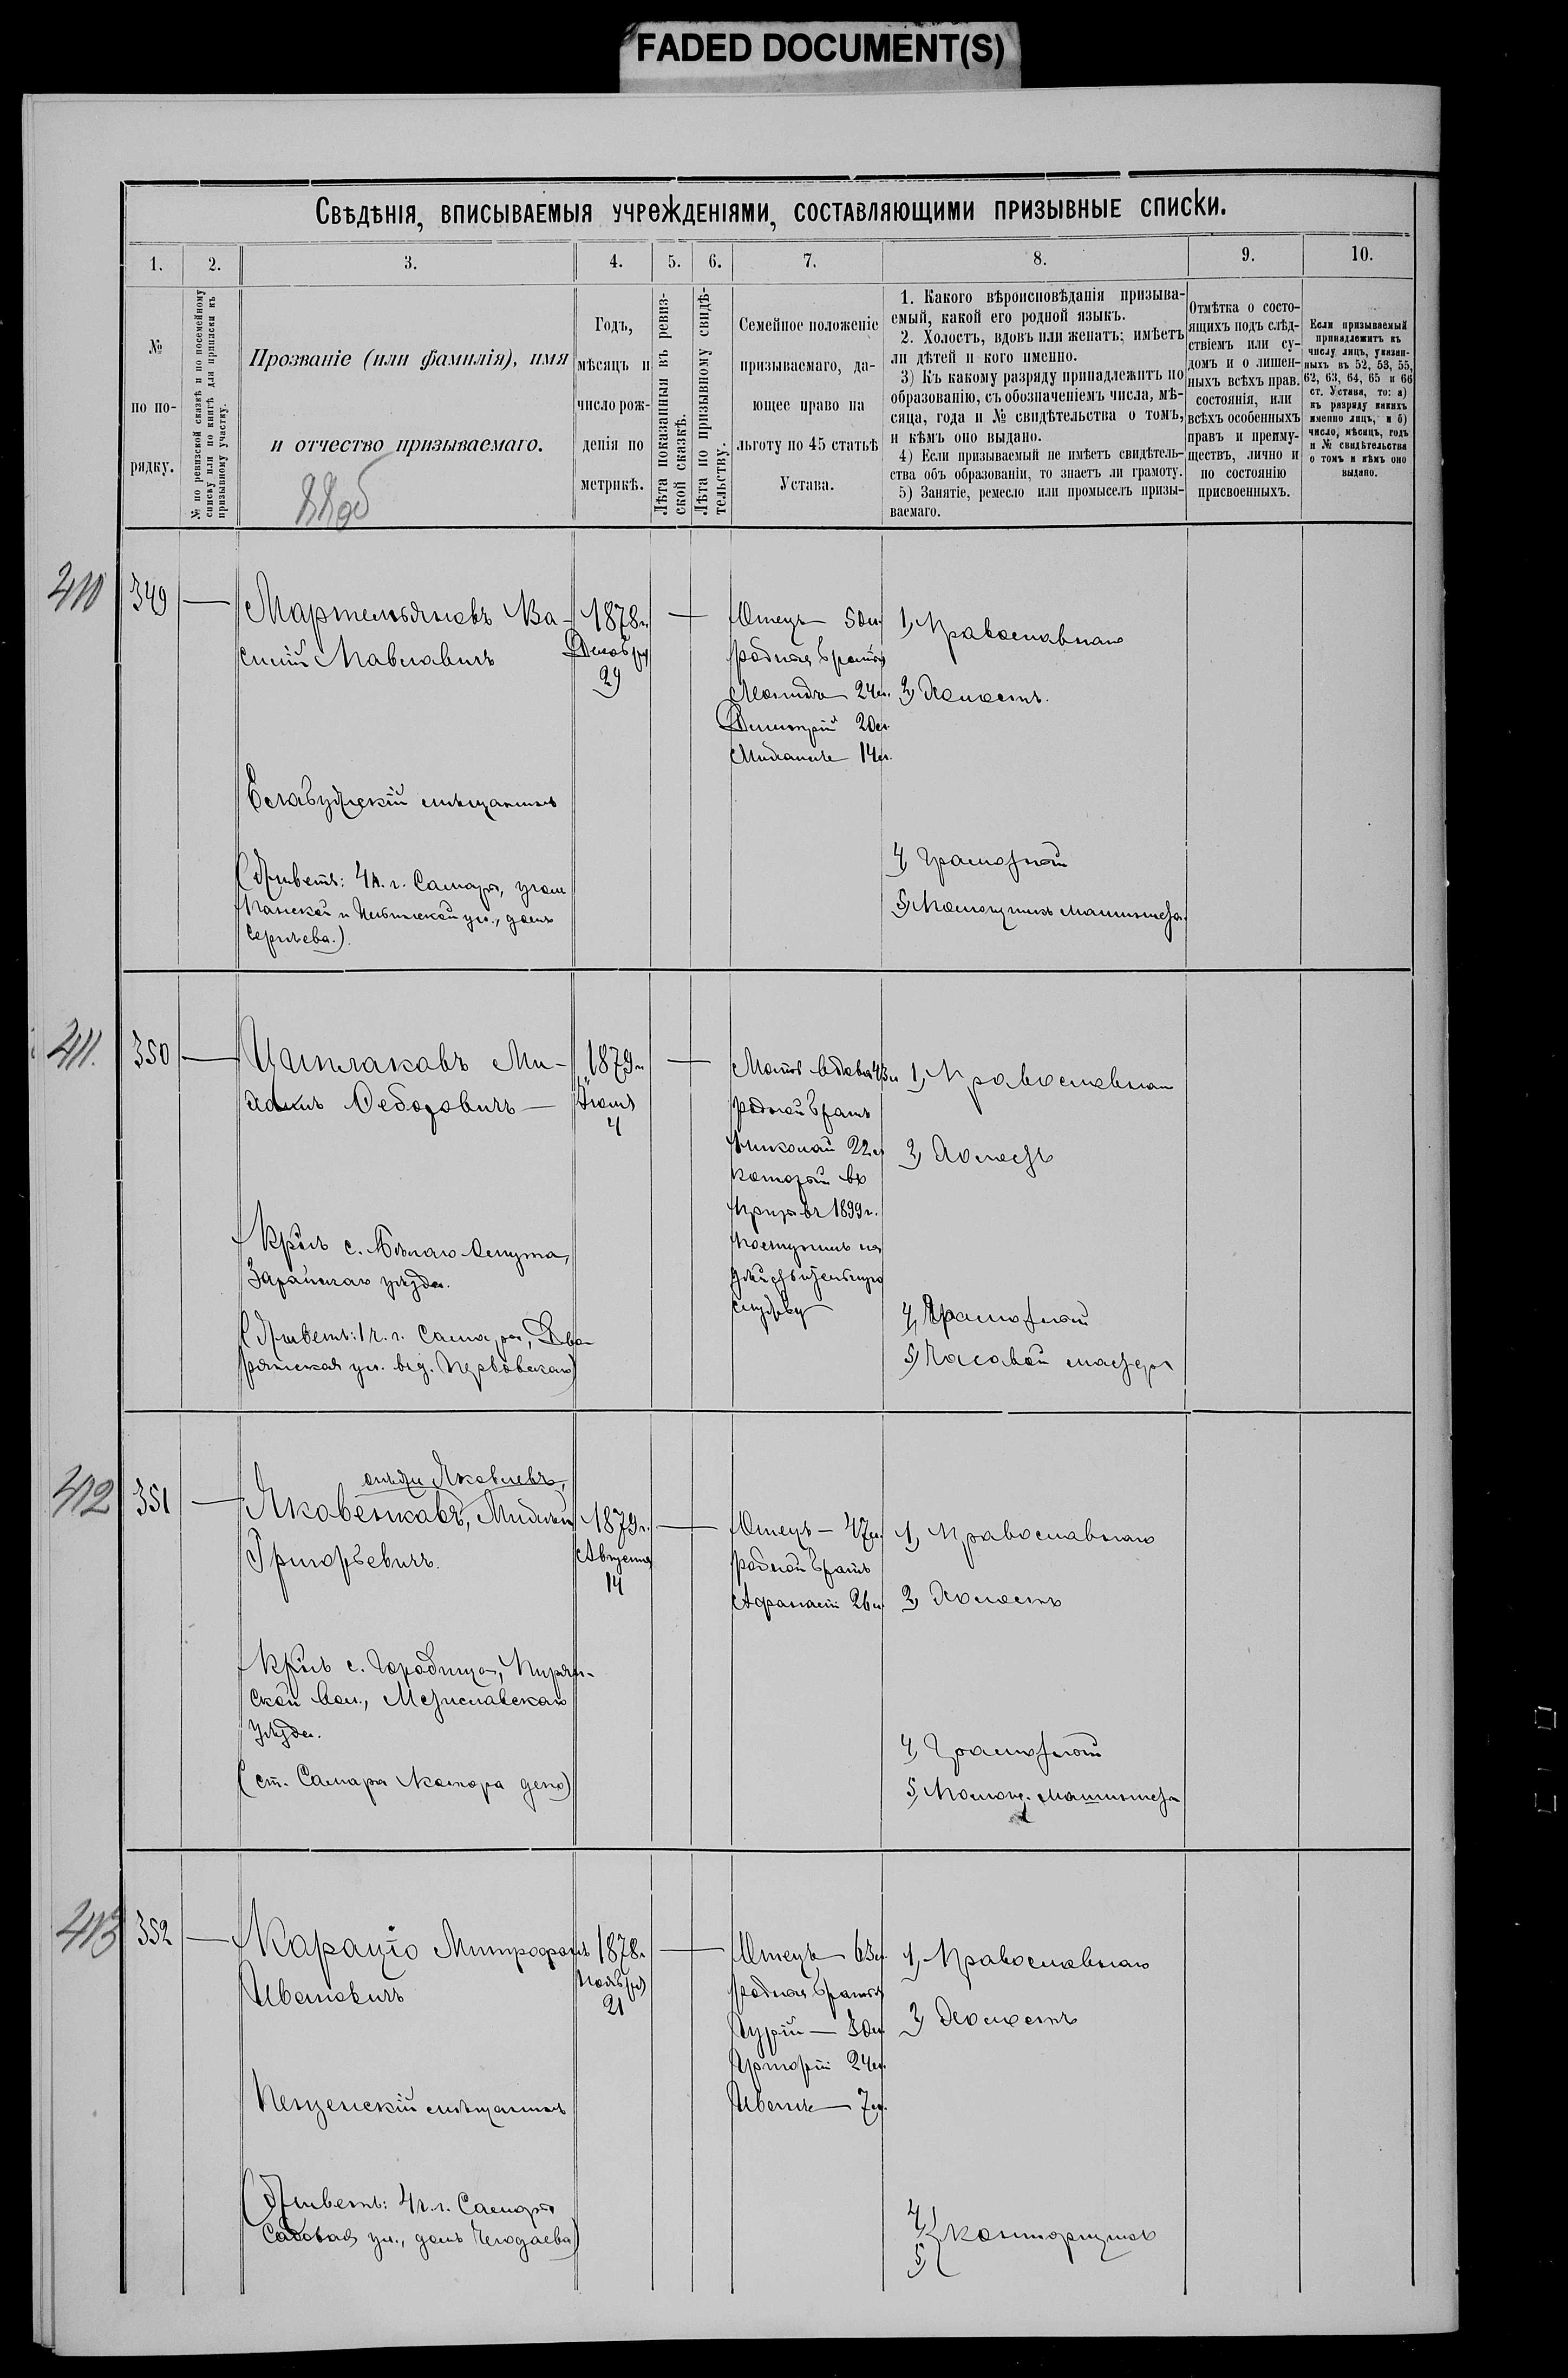 FADED DOCUMENT(S)
Свѣдѣнія, вписываемыя учрежденіями, составляющими призывные списки.
1.
2.
3.
4.
5.
6.
7.
8.
9.
10.
№
по по-
рядку.
№ по ревизской сказкѣ и по посемейному
списку или по книгѣ для приписки къ
призывному участку.
Прозваніе (или фамилія), имя
и отчество призываемаго.
Годъ,
мѣсяцъ и
число рож-
денія по
метрикѣ.
Лѣта показанныя въ ревиз-
ской сказкѣ.
Лѣта по призывному свидѣ-
тельству.
Семейное положеніе
призываемаго, да-
ющее право на
льготу по 45 статьѣ
Устава.
1. Какого вѣроисповѣданія призыва-
емый, какой его родной языкъ.
2. Холостъ, вдовъ или женатъ; имѣетъ
ли дѣтей и кого именно.
3) Къ какому разряду принадлежитъ по
образованію, съ обозначеніемъ числа, мѣ-
сяца, года и № свидѣтельства о томъ,
и кѣмъ оно выдано.
4) Если призываемый не имѣетъ свидѣтель-
ства объ образованіи, то знаетъ ли грамоту.
5) Занятіе, ремесло или промыселъ призы-
ваемаго.
Отмѣтка о состо-
ящихъ подъ слѣд-
ствіемъ или су-
домъ и о лишен-
ныхъ всѣхъ прав.
состоянія, или
всѣхъ особенныхъ
правъ и преиму-
ществъ, лично и
по состоянію
присвоенныхъ.
Если призываемый
принадлежитъ къ
числу лицъ, указан-
ныхъ въ 52, 53, 55,
62, 63, 64, 65 и 66
ст. Устава, то: а)
къ разряду какихъ
именно лицъ, и б)
число, мѣсяцъ, годъ
и № свидѣтельства
о томъ и кѣмъ оно
выдано.
410
349 —
Мартемьяновъ Ва-
силій Павловичъ
Елабужскій мѣщанинъ
(Живетъ: 4 ч. г. Самара, уголъ
Панской и ул., домъ
Сергѣева.).
1878 г.
Декабря
29
—
Отецъ — 50 л.
родные братья
Леонидъ 24 л.
Димитрій 20 л.
Михаилъ 14 л.
1, Православнаго
2, Холостъ.
4, Грамотный
5, Помощникъ машиниста.
411.
350 —
Цыплаковъ Ми-
хаилъ Федоровичъ —
Кр-нъ с. Бѣлаго Омута,
Зарайскаго уѣзда.
(Живетъ: 1 ч. г. Самара, Дво-
рянская ул. въ д. Первовскаго)
1879 г.
4
—
Мать вдова 43 л.
родной братъ
Николай 22 л.
который въ
призывъ 1899 г.
поступилъ на
дѣйствительную
службу
1, Православнаго
2, Холостъ
4, Грамотный
5, Часовой мастеръ
412
351 —
онъ же Яковлевъ,
Яковенковъ, Михаилъ
Григорьевичъ.
Кр-нъ с. Городища,
ской вол., Мстиславскаго
уѣзда.
(ст. Самара Контора депо)
1879 г.
Августа
14
—
Отецъ — 47 л.
родной братъ
Афанасій 26 л.
1, Православнаго
2, Холостъ
4, Грамотный
5, Помощ. машиниста
413
352 —
Митрофанъ
Ивановичъ
Пензенскій мѣщанинъ
(Живетъ: 4 ч. г. Самара
Садовая ул., домъ Чегодаева)
1878 г.
Ноября
21
—
Отецъ — 63 л.
родные братья
Гурій — 30 л.
Григорій 24 л.
Иванъ — 7 л.
1, Православнаго
2, Холостъ
4,
5, } конторщикъ